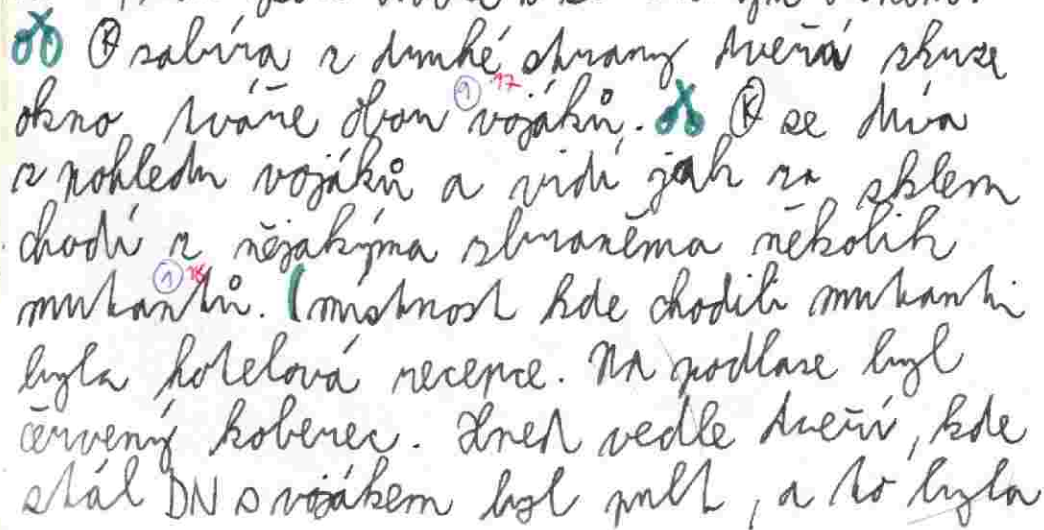 Ⓚ zabírá z druhé strany dveřá skrze
okno tváře obou ⑨ 17 vojáků. Ⓚ se dívá
z pohledu vojáků a vidí jak za sklem
chodí z nějakýma zbraněma několik
mutantů. ① 18 (místnost kde chodili mutanti
byla hotelová recepce. Na podlase byl
červený koberec. Hned vedle dveří, kde
stál DN s vojákem byl pult, a to byla